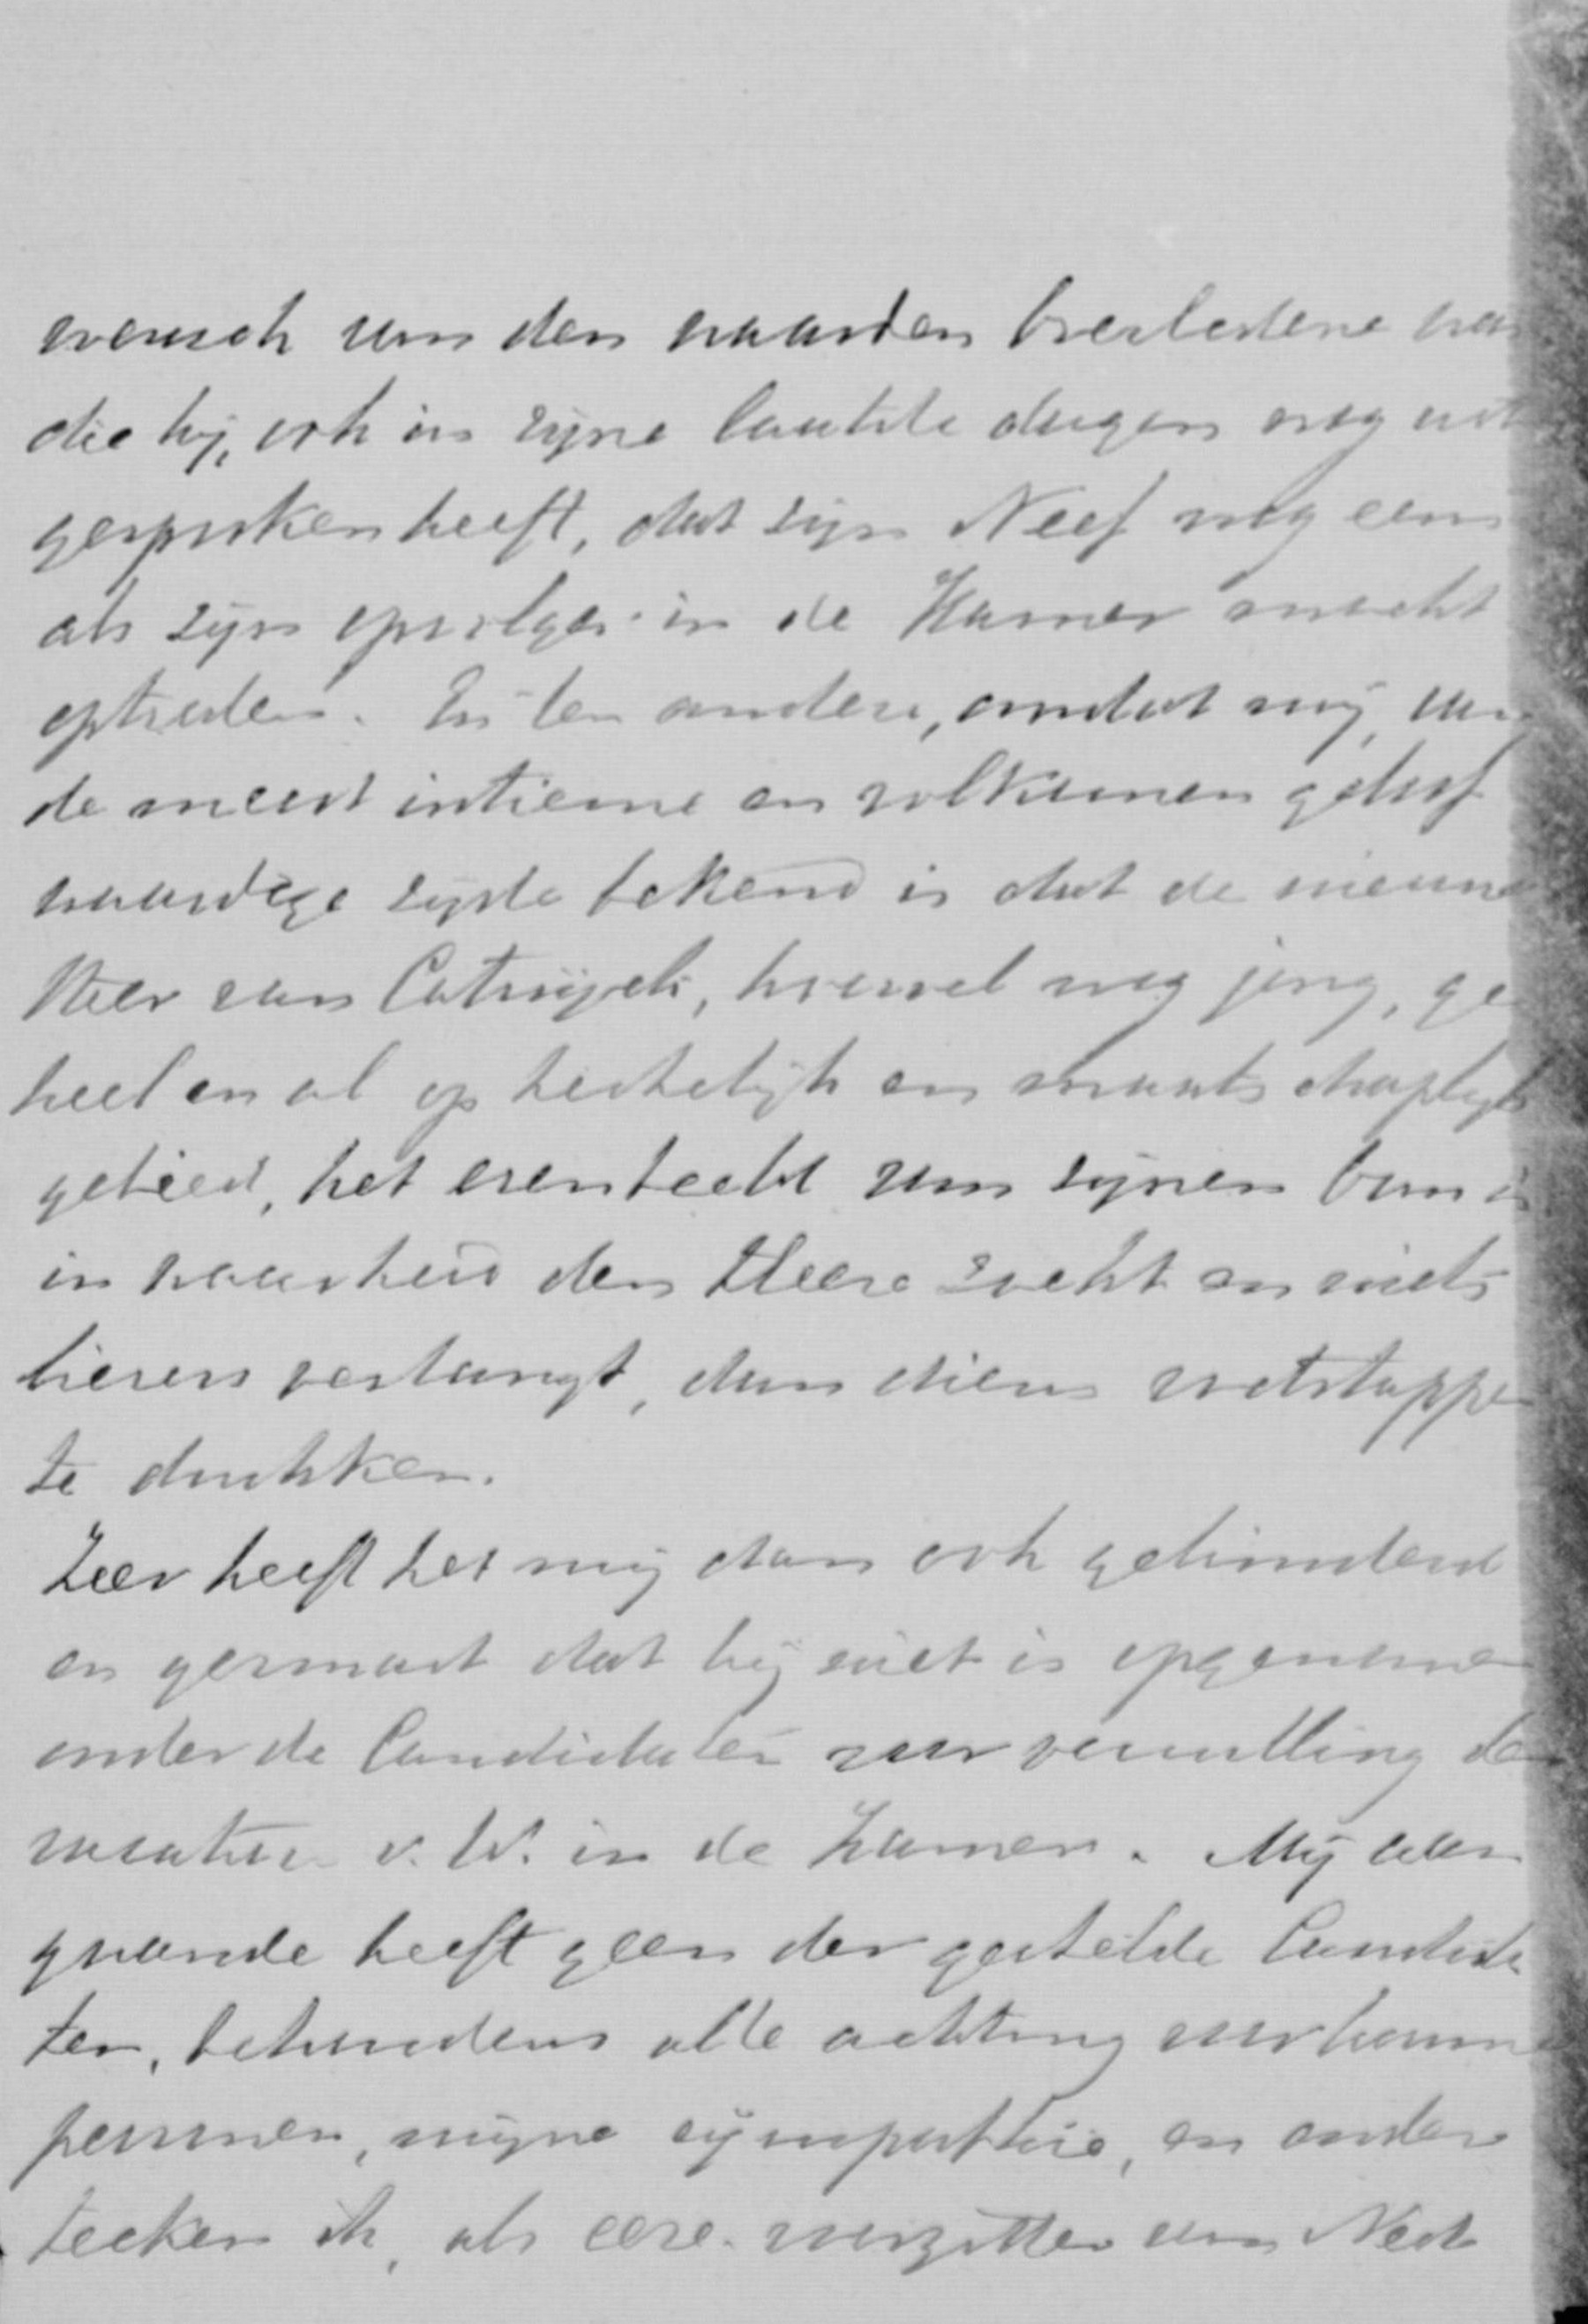 wensch van den waarden overledene was
die hij, ook in zijne laatste dagen nog uit
gesproken heeft, dat zijn Neef nog eens
als zijn opvolger in de Kamer mocht
optreden. En ten andere, omdat mij, van
de meest intieme en volkomen geloof
waardige zijde bekend is dat de nieuwe
Heer van Catwijck, hoewel nog jong, ge
heel en al op kerkelijk en maatschaplijk
gebied, het evenbeeld van zijnen Oom is
in waarheid den Heere zoekt en niets
lievers verlangt, dan diens voetstappen
te drukken.
Zeer heeft het mij dan ook gehinderd
en gesmart dat hij niet is opgenomen
onder de Candidaten voor vervulling der
vacature v. W. in de Kamer. Mij aan
gaande heeft geen der gestelde Candida
ten, behoudens alle achting voor hunne
personen, mijne sympathie, en onder
teeken ik, als eere-voorzitter van Ned